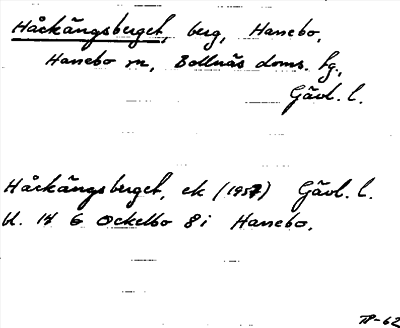 Håckängsberget, berg, Hanebo.
Hanebo sn, Bollnäs doms. tg.,
Gävl. l.
Håckängsberget, ek (1957) Gävl. l.
bl. 14 G Ockelbo 8 i Hanebo.
TP-62